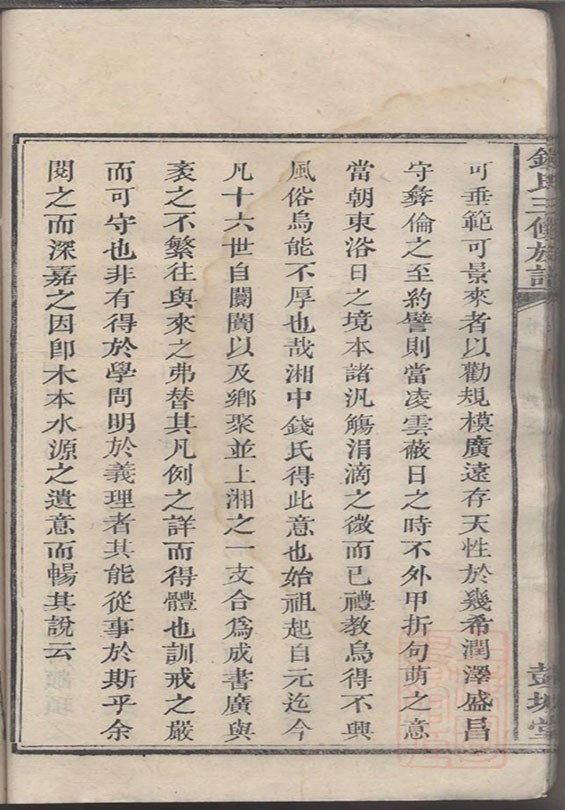 錢氏三修族譜
彭城堂
可垂範可景來者以勸規模廣遠存天性於幾希潤澤盛昌
守彜倫之至約譬則當凌雲蔽日之時不外甲折句萌之意
當朝東浴日之境本諸汎觴涓滴之微而已禮教烏得不興
風俗烏能不厚也哉湘中錢氏得此意也始祖起自元迄今
凡十六世自闤闠以及鄉聚並上湘之一支合爲成書廣與
袤之不繁往與來之弗替其凡例之詳而得體也訓戒之嚴
而可守也非有得於學問明於義理者其能從事於斯乎余
閱之而深嘉之因卽木本水源之遺意而暢其說云